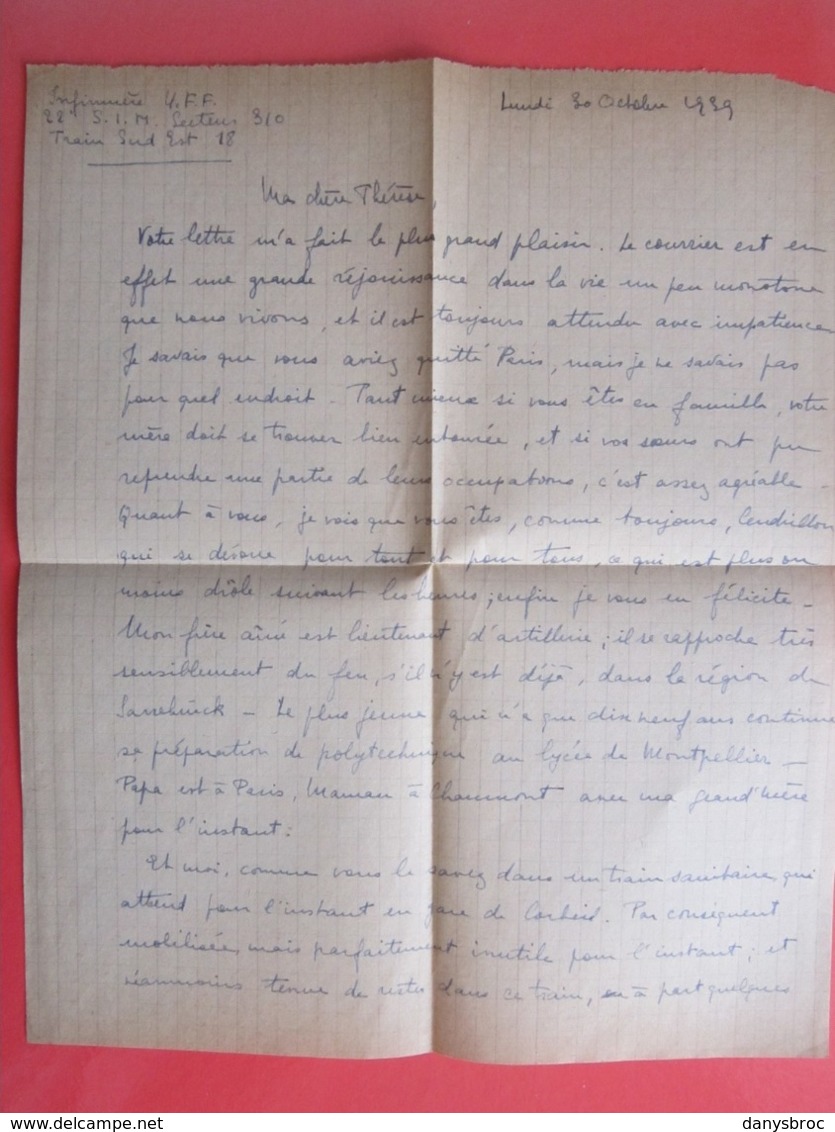 Infirmière U.F.F.
22e S.I.M. Secteur 310
Train Sud Est 18
Lundi 30 Octobre 1939
Ma chère Thérèse,
Votre lettre m'a fait le plus grand plaisir. Le courrier est en
effet une grande réjouissance dans la vie un peu monotone
que nous vivons, et il est toujours attendu avec impatience.
Je savais que vous aviez quitté Paris, mais je ne savais pas
pour quel endroit - Tant mieux si vous êtes en famille, votre
mère doit se trouver bien entourée, et si vos sœurs ont pu
reprendre une partie de leurs occupations, c'est assez agréable -
Quant à vous, je vois que vous êtes, comme toujours, Cendrillon
qui se dévoue pour tout et pour tous, ce qui est plus ou
moins drôle suivant les heures ; enfin je vous en félicite -
Mon frère aîné est lieutenant d'artillerie ; il se rapproche très
sensiblement du feu, s'il n'y est déjà, dans la région de
Sarrebrück - Le plus jeune qui n'a que dix neuf ans continue
sa préparation de polytechnique au lycée de Montpellier -
Papa est à Paris, Maman à Chaumont avec ma grand'mère
pour l'instant.
Et moi, comme vous le savez dans un train sanitaire qui
attend pour l'instant en gare de Corbeil. Par conséquent
mobilisée, mais parfaitement inutile pour l'instant ; et
néanmoins tenue de rester dans ce train, à part quelques
danysbroc